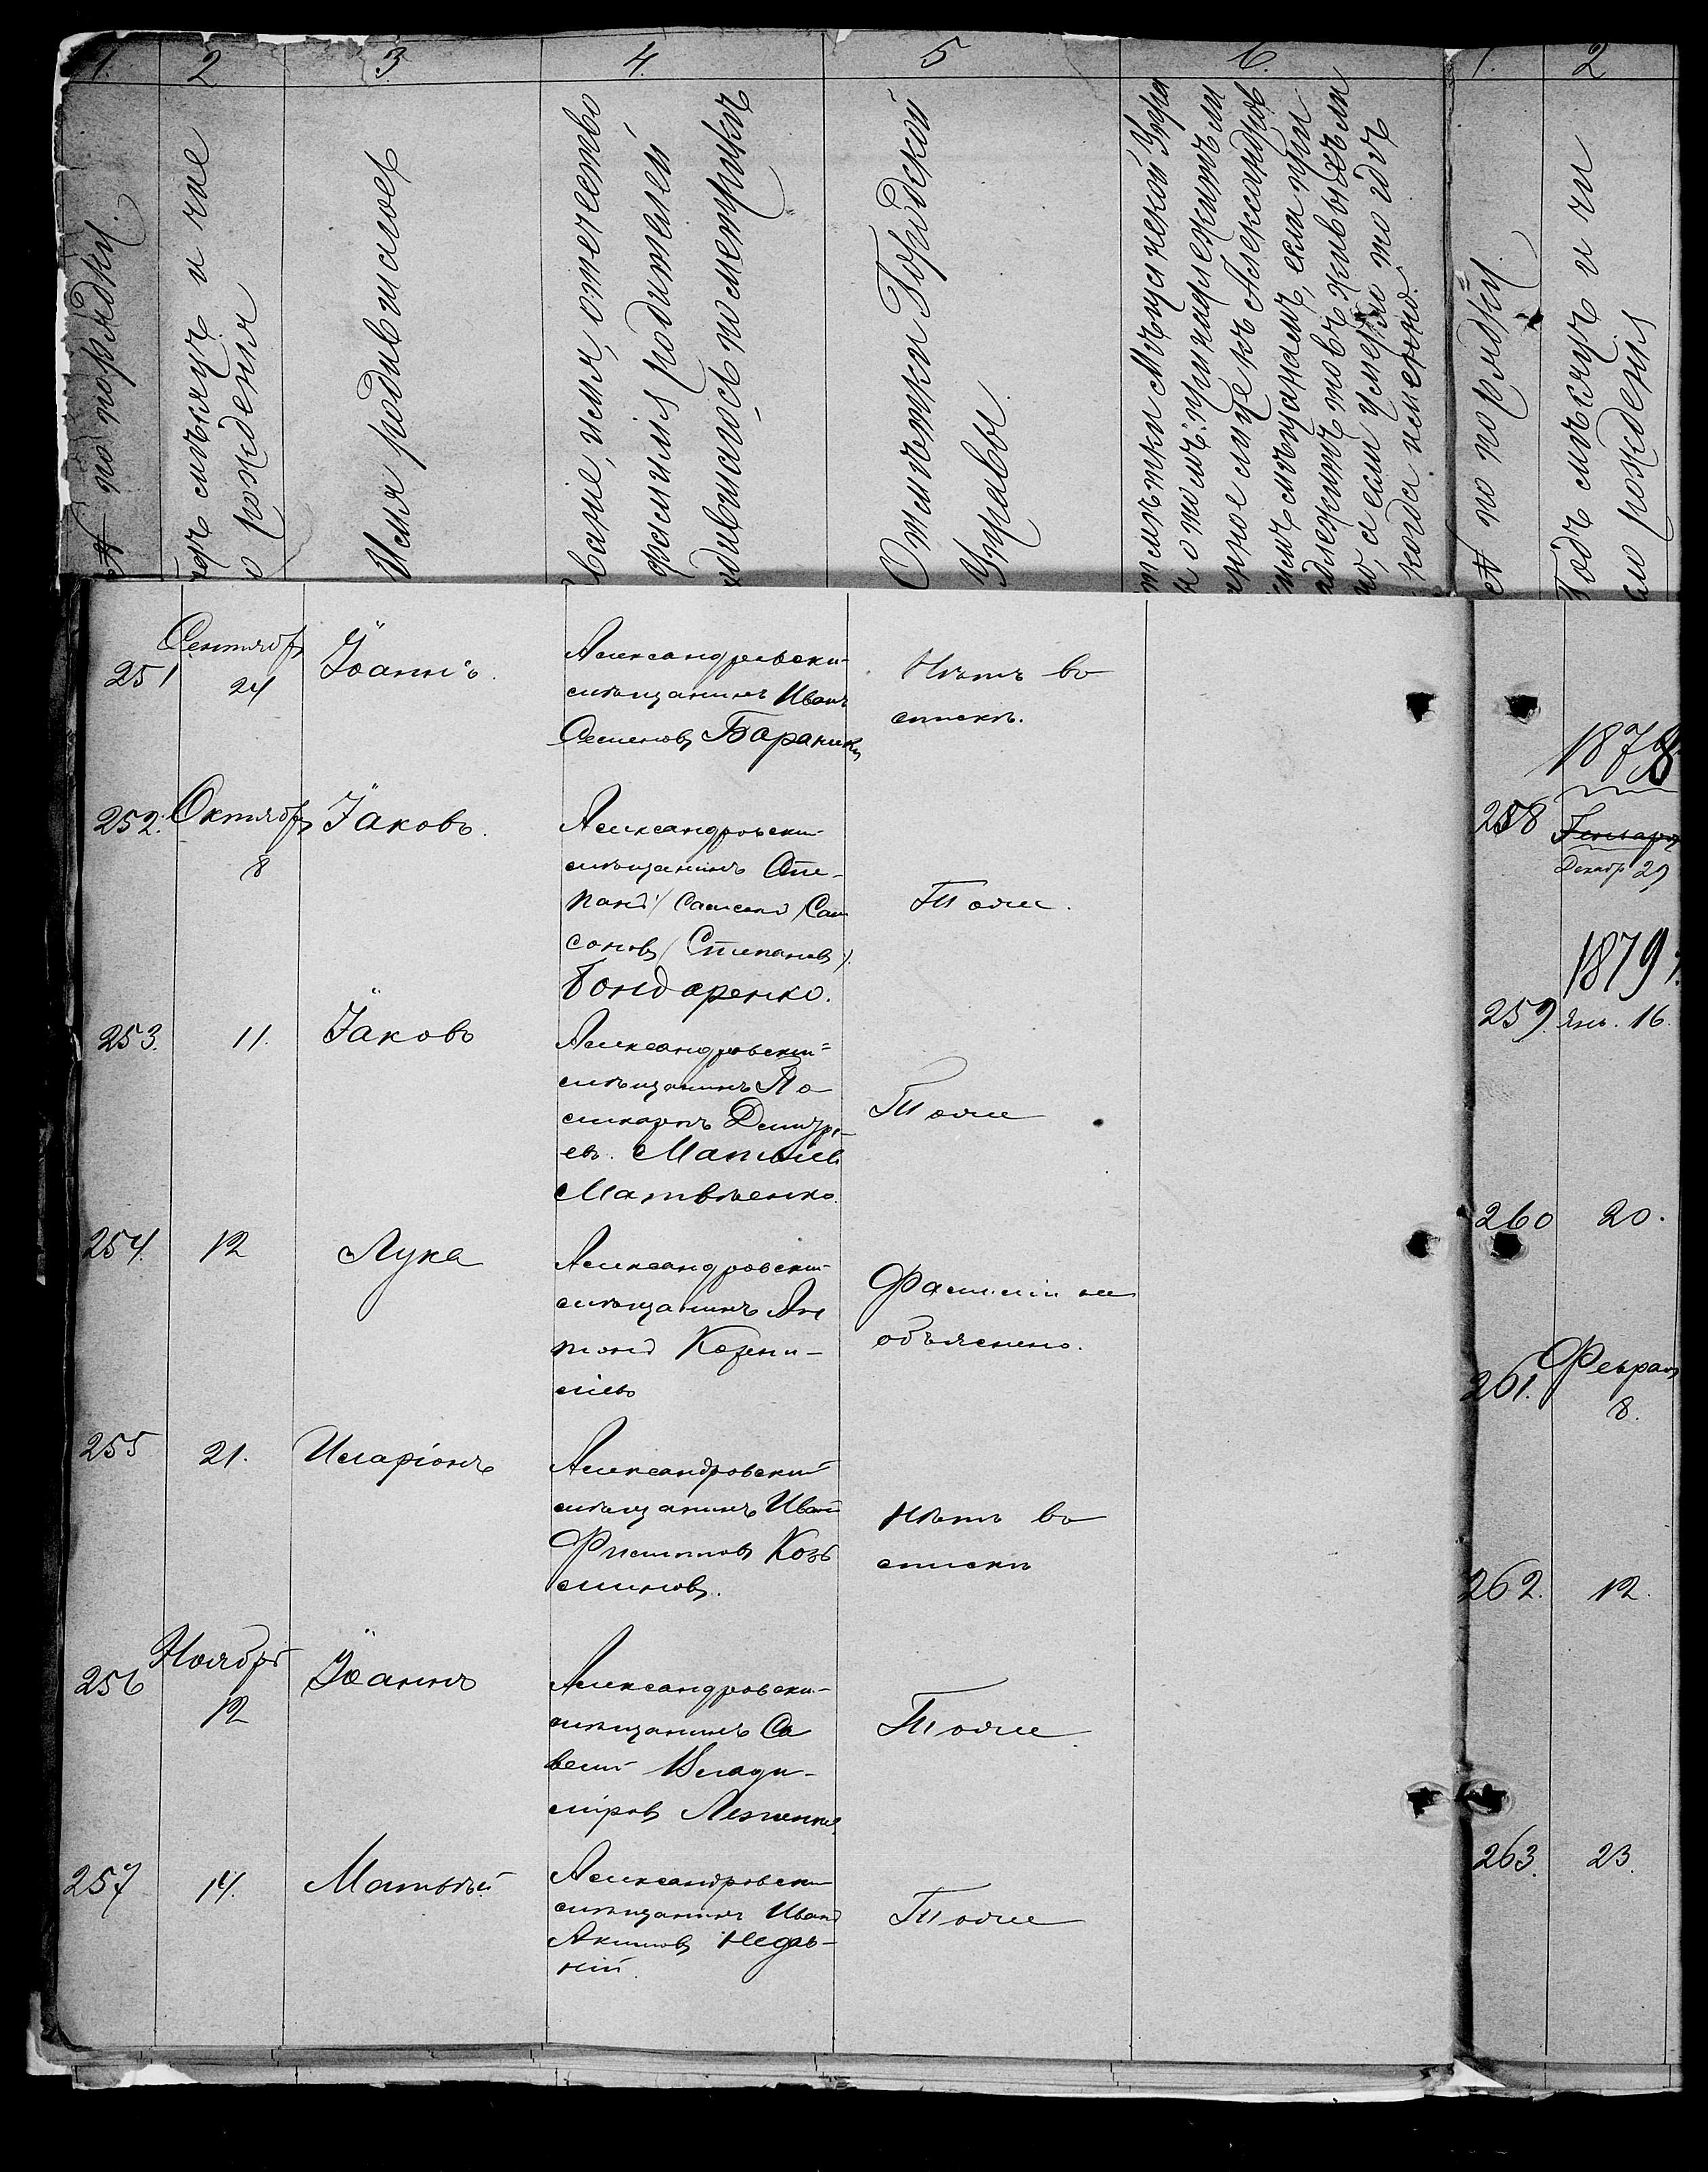 1. 2 3 4. 5 6.
№ по порядку.
мѣсяцъ и чис
рожденія
Имя родившагося
Званіе, имя, отчество
фамилія родителей
родившагося по метрикѣ
Отмѣтки Городской
Управы.
Отмѣтки Мѣщанской Упра
о томъ: принадлежитъ ли
лице къ Александров
мѣщанамъ, если при
надлежитъ то въ живыхъ ли
а если умеръ то идѣ
когда именно.
251 Сентября 24 Іоаннъ.
Александровскій
мѣщанинъ Иванъ
Семеновъ Бараникъ
Нѣтъ въ
спискѣ.
252. Октября 8 Іаковъ.
Александровскій
мѣщанинъ Сте-
панъ (Самсонъ) Сам
соновъ (Степановъ).
Бондаренко.
Тоже.
253. 11. Іаковъ
Александровскій
мѣщанинъ По
ликарпъ Дмитрі-
евъ. Матвѣев
Матвѣенко.
Тоже
254. 12 Лука
Александровскій
мѣщанинъ Ан
тонъ Корни-
ліевъ
Фамиліи не
объяснено.
255 21. Иларіонъ
Александровскій
мѣщанинъ Иванъ
Филиповъ Козь
миновъ.
Нѣтъ въ
спискѣ
256 Ноября 12 Іоаннъ
Александровскій
мѣщанинъ Са
велій Влади-
міровъ
Тоже.
257 14. Матвѣй
Александровскій
мѣщанинъ Иванъ
Акимовъ
Тоже
1. 2
№ по порядку.
Годъ мѣсяцъ и чи
сло рожденія
1878
258 Генваря
Декабр 29
1879
259. Янв. 16.
260 20.
261. Февраля
8.
262. 12.
263. 23.